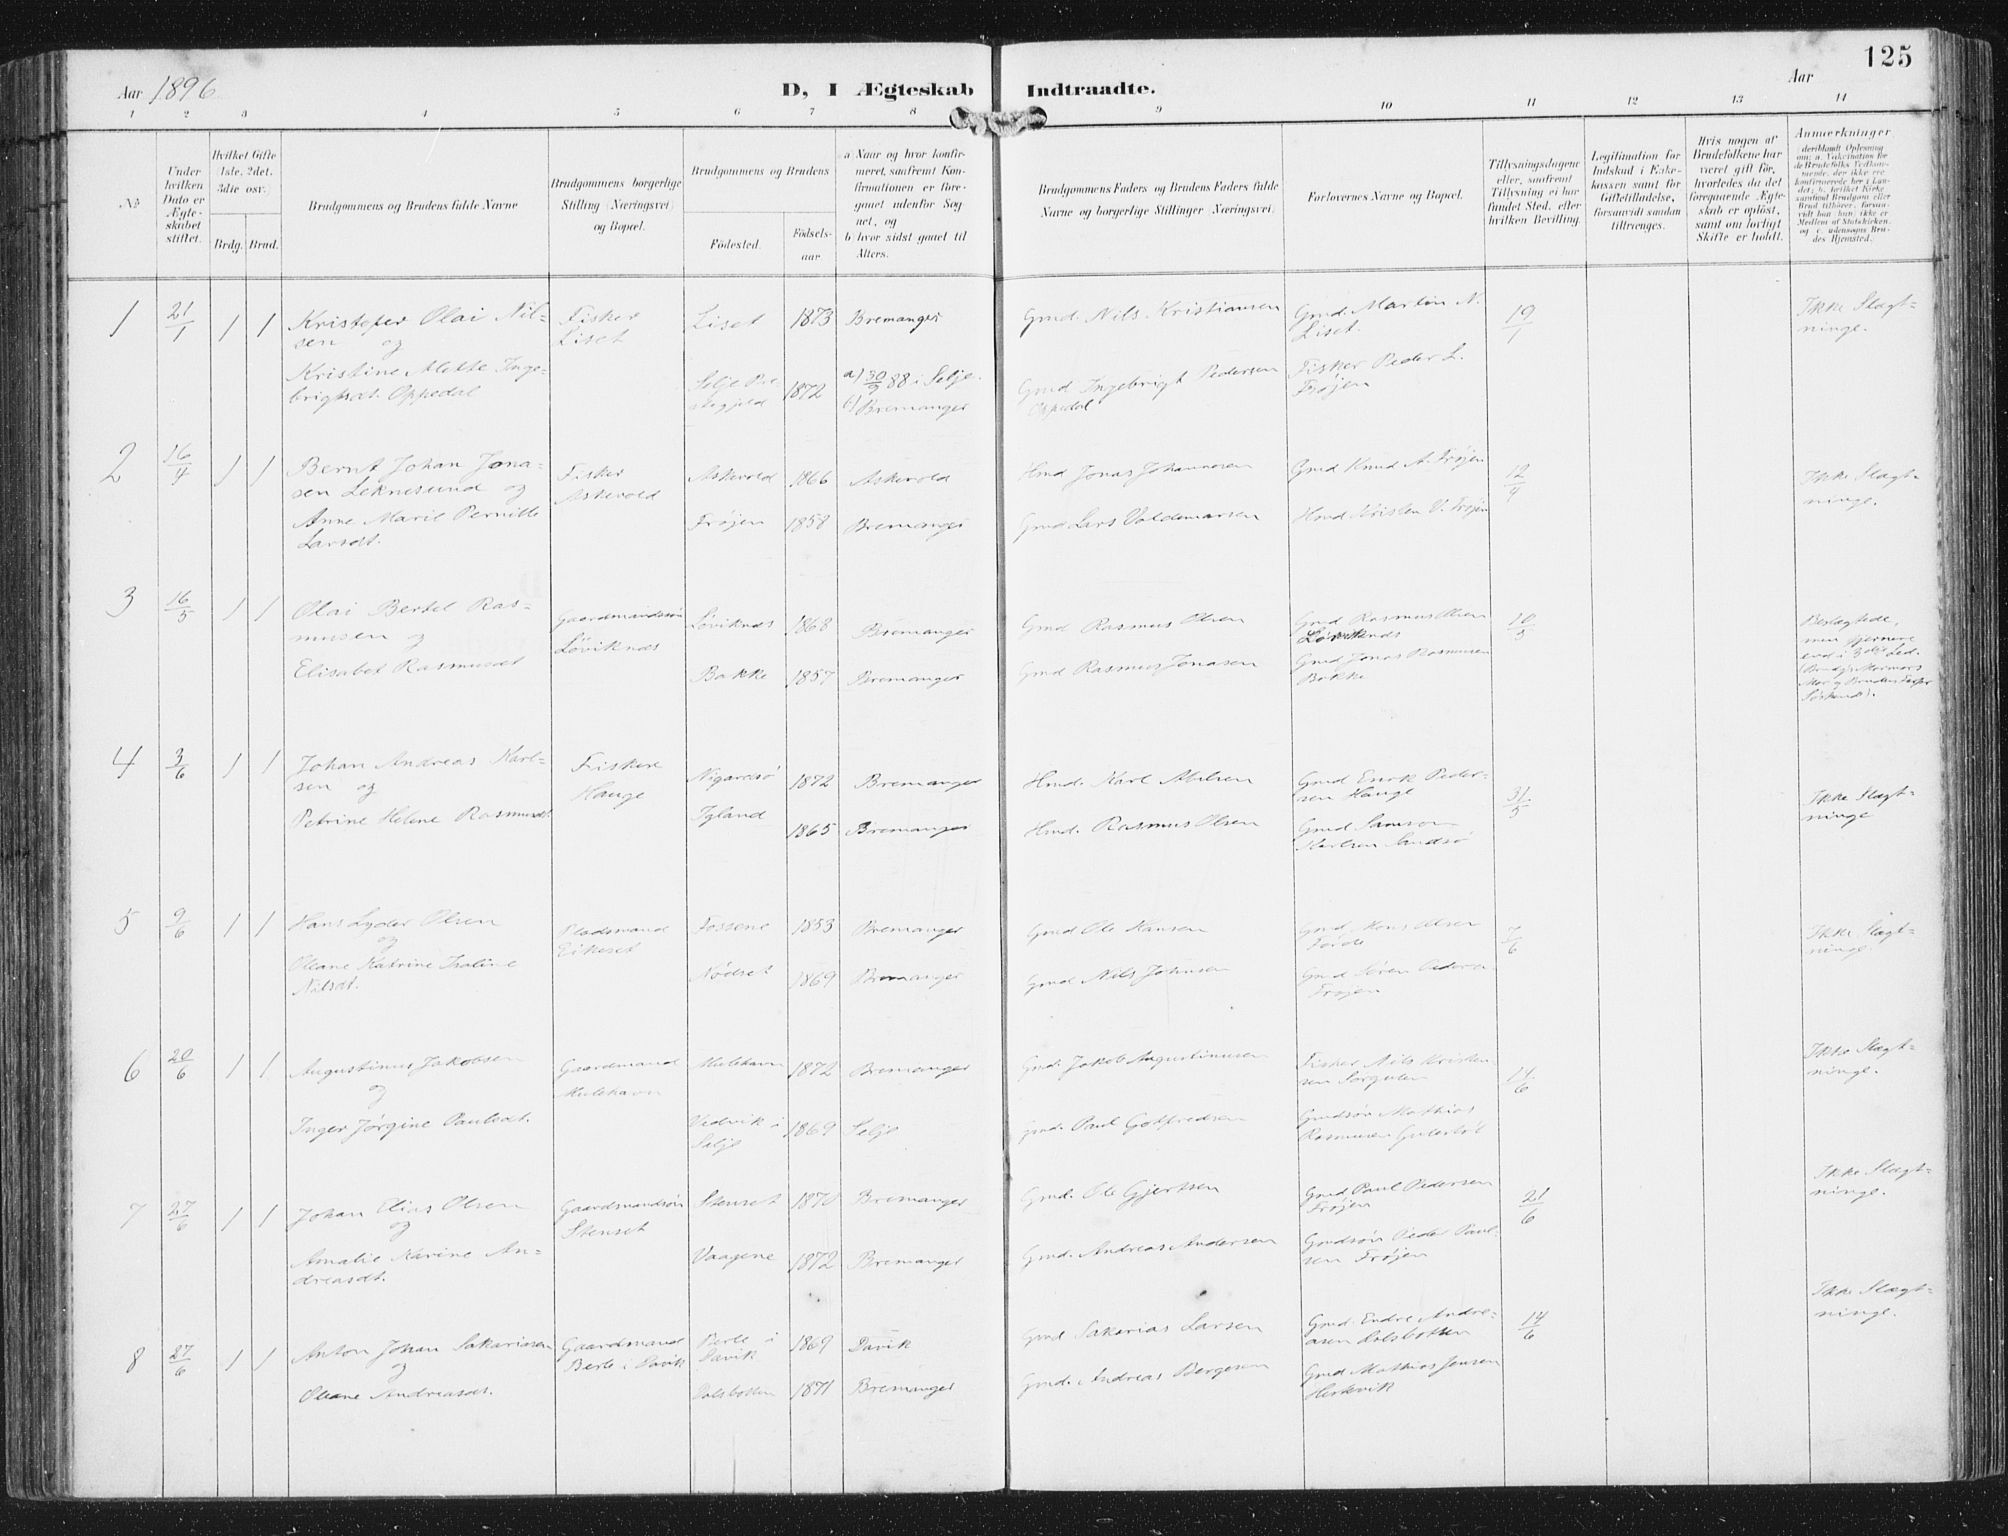 125
Aar 1896
D, I Ægteskab Indtraadte.
Aar
1 2 3 4 5 6 7 8 9 10 11 12 13 14
No.
Under hvilken Dato er Ægteskabet stiftet.
Hvilket Gifte (1ste, 2det, 3die osv.)
Brdg. Brud.
Brudgommens og Brudens fulde Navne
Brudgommens borgerlige Stilling (Næringsvei) og Bopæl.
Brudgommens og Brudens
Fødested.
Fødselsaar
a) Naar og hvor konfirmeret, saafremt Konfirmationen er foregaaet udenfor Sognet, og
b) hvor sidst gaaet til Alters.
Brudgommens Faders og Brudens Faders fulde Navne og borgerlige Stillinger (Næringsvei)
Forlovernes Navne og Bopæl.
Tillysningsdagene eller, saafremt Tillysning ei har fundet Sted, efter hvilken Bevilling.
Legitimation for Indskud i Enkekassen samt for Giftetilladelse, forsaavidt saadan tiltrænges.
Hvis nogen af Brudefolkene har været gift før, hvorledes da det foregaaende Ægteskab er opløst, samt om lovligt Skifte er holdt.
Anmerkninger
1 21/1 1 1 Kristofer Olai Nil-
sen og
Fisker
Liset
Liset 1873 Bremanger
Gmd. Nils Kristiansen
Gmd. Martin N.
Liset.
19/1
Ikke Slægt-
ninge.
Kristine Alette Inge-
brigtsdt. Oppedal
Selje Præ-
stegjeld 1872
a) 30/9 88 i Selje.
b) Bremanger
Gmd Ingebrigt Pedersen
Oppedal
Fisker Peder L.
Frøjen
2 16/4 1 1 Bernt Johan Jona-
sen Leknesund og
Fisker
Askevold
Askevold 1866 Askevold
Hmd Jonas Johannesen
Gmd Knud A. Frøjen
12/4
Ikke Slægt-
ninge.
Anne Marie Pernille
Larsdt.
Frøjen 1858 Bremanger
Gmd Lars Valdemarsen
Hmd Kristen V. Frøjen
3 16/5 1 1 Olai Bertel Ras-
musen og
Gaardmandssøn
Løviknæs
Løviknæs 1868 Bremanger
Gmd Rasmus Olsen
Gmd Rasmus Olsen
Løviknæs
10/5
Beslægtede,
men fjernere
end i 3die Led.
Elisabet Rasmusdt
Bakke 1857 Bremanger
Gmd Rasmus Jonasen
Gmd Jonas Rasmusen
Bakke
4 3/6 1 1 Johan Andreas Karl-
sen og
Fisker
Hauge
Nigardsø 1872 Bremanger
Hmd. Karl Abelsen
Gmd Enok Peder-
sen Hauge
31/5
Ikke Slægt-
ninge
Petrine Helene Rasmusdt.
Igland 1865 Bremanger
Hmd. Rasmus Olsen
Gmd Samson
Karlsen Sandsø
5 9/6 1 1 Hans Lyder Olsen
og
Pladsmand
Eikeset
Fossene 1853 Bremanger
Gmd Ole Hansen
Gmd Mons Olsen
Førde
7/6
Ikke Slægt-
ninge.
Oleane Katrine Iraline
Nilsdt.
Nødset 1869 Bremanger
Gmd Nils Johnsen
Gmd Søren Peders
Frøjen
6 20/6 1 1 Augustinus Jakobsen
og
Gaardmand
Mulehavn
Mulehavn 1872 Bremanger
Gmd. Jakob Augustinusen
Fisker Nils Kristen-
sen Sørgulen
14/6
Ikke Slægt-
ninge.
Inger Jørgine Paulsdt.
Vedvik i
Selje 1869 Selje
Gmd. Paul Gotfredsen
Gmdsøn Mathias
Rasmusen Gulesbøl
7 27/6 1 1 Johan Elias Olsen
og
Gaardmandssøn
Stenset
Stenset 1870 Bremanger
Gmd. Ole Gjertsen
Gmd Paul Pedersen
Frøjen
21/6
Ikke Slægt-
ninge.
Amalie Karine An-
dreasdt.
Vaagene 1872 Bremanger
Gmd. Andreas Andersen
Gmdsøn Peder Paul-
sen Frøjen
8 27/6 1 1 Anton Johan Sakariasen
og
Gaardmand
Berle i Davik
Berle i
Davik 1869 Davik
Gmd Sakarias Larsen
Gmd. Endre Andre-
asen Dalsbotten
14/6
Ikke Slægt-
ninge.
Oleane Andreasdt.
Dalsbotten 1871 Bremanger
Gmd. Andreas Bergesen
Gmd Mathias Jensen
Herkvik